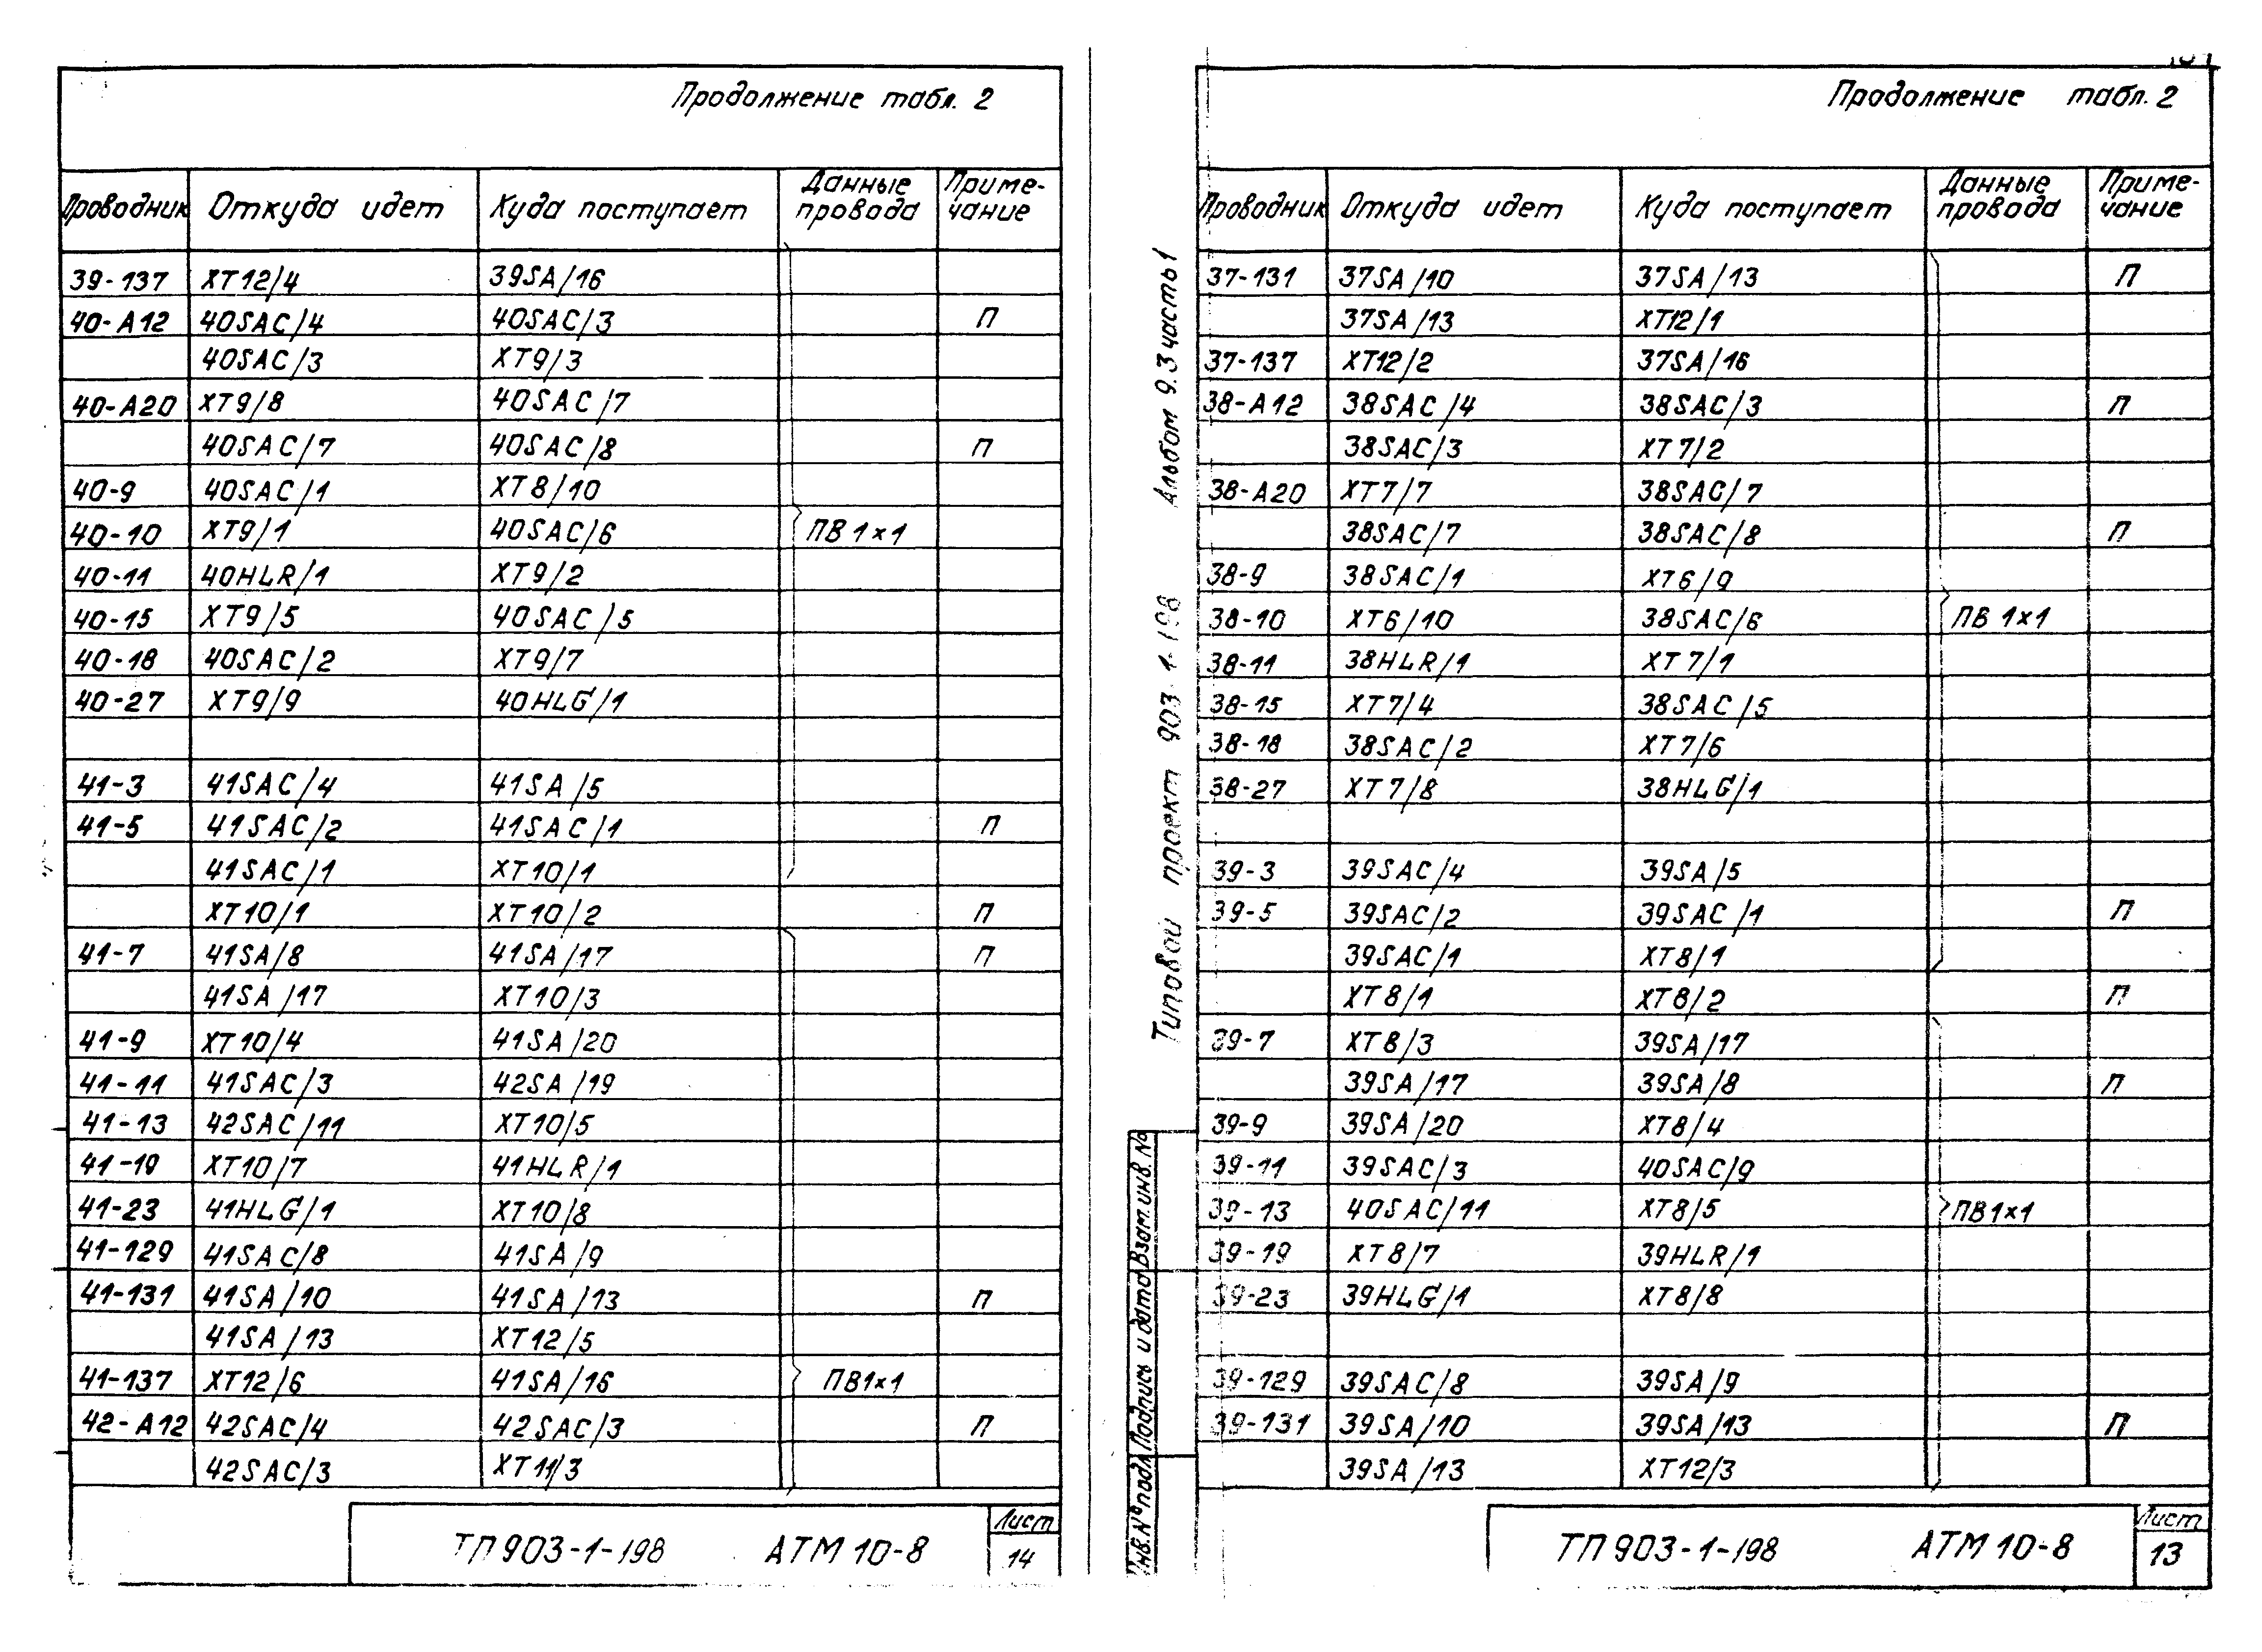 Продолжение табл. 2
Проводник Откуда идет Куда поступает Данные провода Примечание
39-137 XT12/4 39SA/16
40-A12 40SAC/4 40SAC/3 П
40SAC/3 XT9/3
40-A20 XT9/8 40SAC/7
40SAC/7 40SAC/8 П
40-9 40SAC/1 XT8/10
40-10 XT9/1 40SAC/6 ПВ 1×1
40-11 40HLR/1 XT9/2
40-15 XT9/5 40SAC/5
40-18 40SAC/2 XT9/7
40-27 XT9/9 40HLG/1
41-3 41SAC/4 41SA/5
41-5 41SAC/2 41SAC/1 П
41SAC/1 XT10/1
XT10/1 XT10/2 П
41-7 41SA/8 41SA/17 П
41SA/17 XT10/3
41-9 XT10/4 41SA/20
41-11 41SAC/3 42SA/19
41-13 42SAC/11 XT10/5
41-19 XT10/7 41HLR/1
41-23 41HLG/1 XT10/8
41-129 41SAC/8 41SA/9
41-131 41SA/10 41SA/13 П
41SA/13 XT12/5
41-137 XT12/6 41SA/16 ПВ1×1
42-A12 42SAC/4 42SAC/3 П
42SAC/3 XT11/3
ТП903-1-198 АТМ10-8 Лист 14
Типовой проект 903-1-198 Альбом 9.3 часть1
Взам.инв.№
Подпись и дата
Инв.№подл.
Продолжение табл. 2
Проводник Откуда идет Куда поступает Данные провода Примечание
37-131 37SA/10 37SA/13 П
37SA/13 XT12/1
37-137 XT12/2 37SA/16
38-A12 38SAC/4 38SAC/3 П
38SAC/3 XT7/2
38-A20 XT7/7 38SAC/7
38SAC/7 38SAC/8 П
38-9 38SAC/1 XT6/9
38-10 XT6/10 38SAC/6 ПВ 1×1
38-11 38HLR/1 XT7/1
38-15 XT7/4 38SAC/5
38-18 38SAC/2 XT7/6
38-27 XT7/8 38HLG/1
39-3 39SAC/4 39SA/5
39-5 39SAC/2 39SAC/1 П
39SAC/1 XT8/1
XT8/1 XT8/2 П
39-7 XT8/3 39SA/17
39SA/17 39SA/8 П
39-9 39SA/20 XT8/4
39-11 39SAC/3 40SAC/9
39-13 40SAC/11 XT8/5 ПВ1×1
39-19 XT8/7 39HLR/1
39-23 39HLG/1 XT8/8
39-129 39SAC/8 39SA/9
39-131 39SA/10 39SA/13 П
39SA/13 XT12/3
ТП903-1-198 АТМ10-8 Лист 13